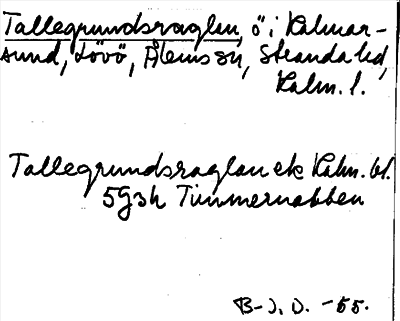 Tallegrundsraglan, ö i Kalmar-
sund, Lövö, Ålems sn, Stranda hd,
Kalm. l.
Tallegrundsraglan ek Kalm. bl.
5G3h Timmernabben
B-J. D. -55.